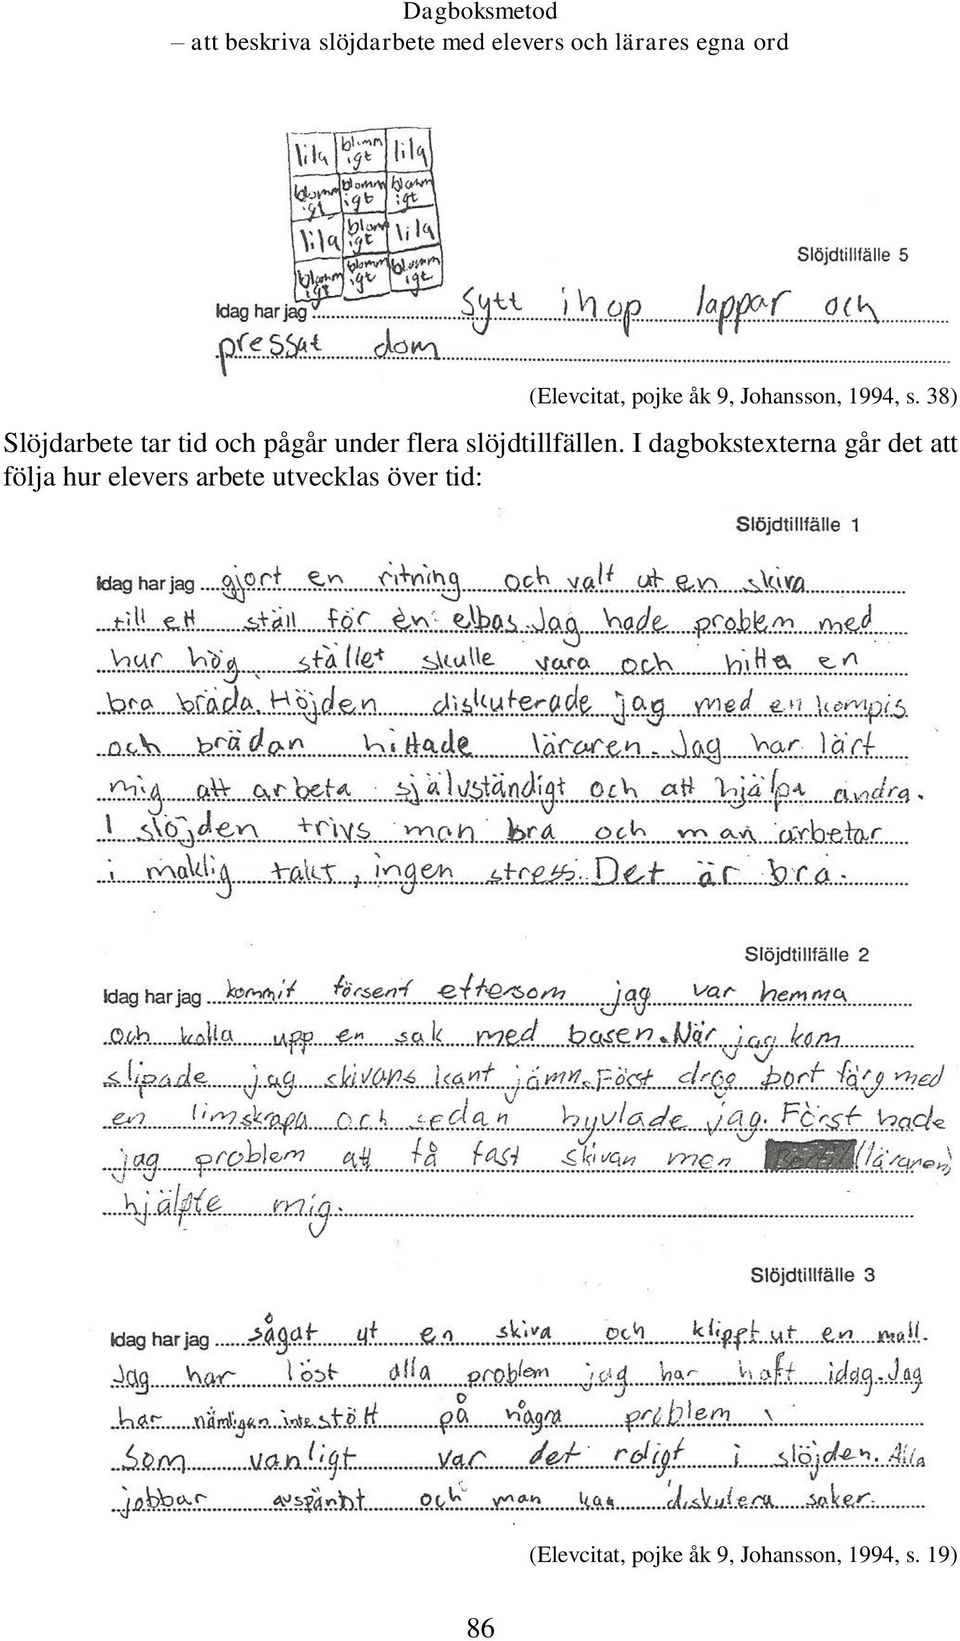 Dagboksmetod
– att beskriva slöjdarbete med elevers och lärares egna ord
lila blomm igt lila
blomm igt blomm igt blomm igt
lila blomm igt lila
blomm igt blomm igt blomm igt
Slöjdtillfälle 5
Idag har jag sytt ihop lappar och
pressat dom
(Elevcitat, pojke åk 9, Johansson, 1994, s. 38)
Slöjdarbete tar tid och pågår under flera slöjdtillfällen. I dagbokstexterna går det att
följa hur elevers arbete utvecklas över tid:
Slöjdtillfälle 1
Idag har jag gjort en ritning och valt ut en skiva
till ett ställ för en elbas. Jag hade problem med
hur hög stället skulle vara och hitta en
bra bräda. Höjden diskuterade jag med en kompis
och brädan hittade läraren. Jag har lärt
mig att arbeta självständigt och att hjälpa andra.
I slöjden trivs man bra och man arbetar
i maklig takt, ingen stress. Det är bra.
Slöjdtillfälle 2
Idag har jag kommit försent eftersom jag var hemma
och kolla upp en sak med basen. När jag kom
slipade jag skivans kant jämn. Först drog bort färg med
en limskrapa och sedan hyvlade jag. Först hade
jag problem att få fast skivan men (läraren)
hjälpte mig.
Slöjdtillfälle 3
Idag har jag sågat ut en skiva och klippt ut en mall.
Jag har löst alla problem jag har haft idag. Jag
har nämligen inte stött på några problem
Som vanligt var det roligt i slöjden. Alla
jobbar avspänt och man kan diskutera saker.
(Elevcitat, pojke åk 9, Johansson, 1994, s. 19)
86